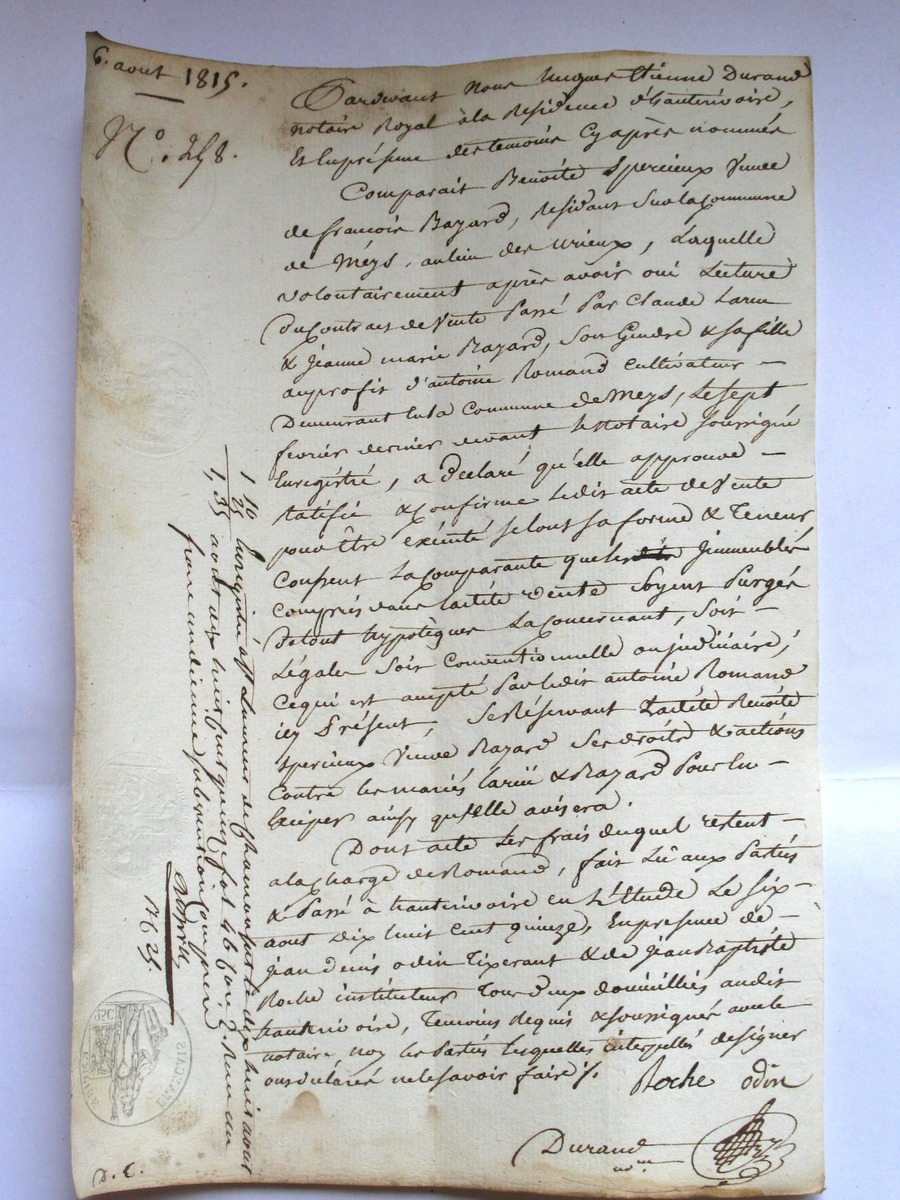 6. aout 1815.
N.o 258.
Pardevant Nous hugues Etienne Durand
notaire Royal ala Residence d'hauterivoire,
Et Enpresence destemoins Cy après nommés
Comparait Benoite Spercieux veuve
de francois Bazard, Residant Sur la Commune
de Méys, aulieu des urieux, Laquelle
volontairement après avoir oui Lecture
Du Contrat de Vente Passé Par Claude
& Jeanne marie Bazard, Son Gendre & Sa fille
auprofit d'antoine Romand cultivateur —
Demeurant En la Commune de Meys, Le Sept
fevrier dernier devant le Notaire Soussigné
Enregistré, a déclaré qu'elle approuve —
ratifie & Confirme Ledit acte de Vente
pour être éxécuté Selont Sa forme & Teneur
Consent La Comparante que les Jmmeubles
Compris dans ladite vente Soyent Purgés
De tout hypotèques La Concernant, Soit —
Légales Soit Conventionnelle ou judiciaire;
Ce qui est accepté Par ledit antoine Romand
icy Présent, Se Réservant Ladite Benoite
Spercieux Veuve Bazard Ses droits & actions
Contre les mariés & Bazard Pour les —
Exiper ainsy qu'Elle avisera.
Dont acte Les frais duquel restent —
a la Charge de Romand, fait Lû aux Parties
& Passé à hauterivoire en L'Etude Le Six —
aout Dix huit Cent quinze, En presence de —
jean Denis odin Tixerant & de jean Baptiste
Roche instituteur Tous deux domiciliés audit
hauterivoire, Temoins requis & Soussignés avec le
notaire, non les Parties lesquelles interpellés de signer
ont déclaré ne le savoir faire ./.
Roche odin
Durand
no.re
1 10
25
1,35
Enregistré à St. Laurent de Chamousset le dix huit aout
dix huit cent quinze, fol. 46
franc un dixieme Subvention Comprise
D. C.